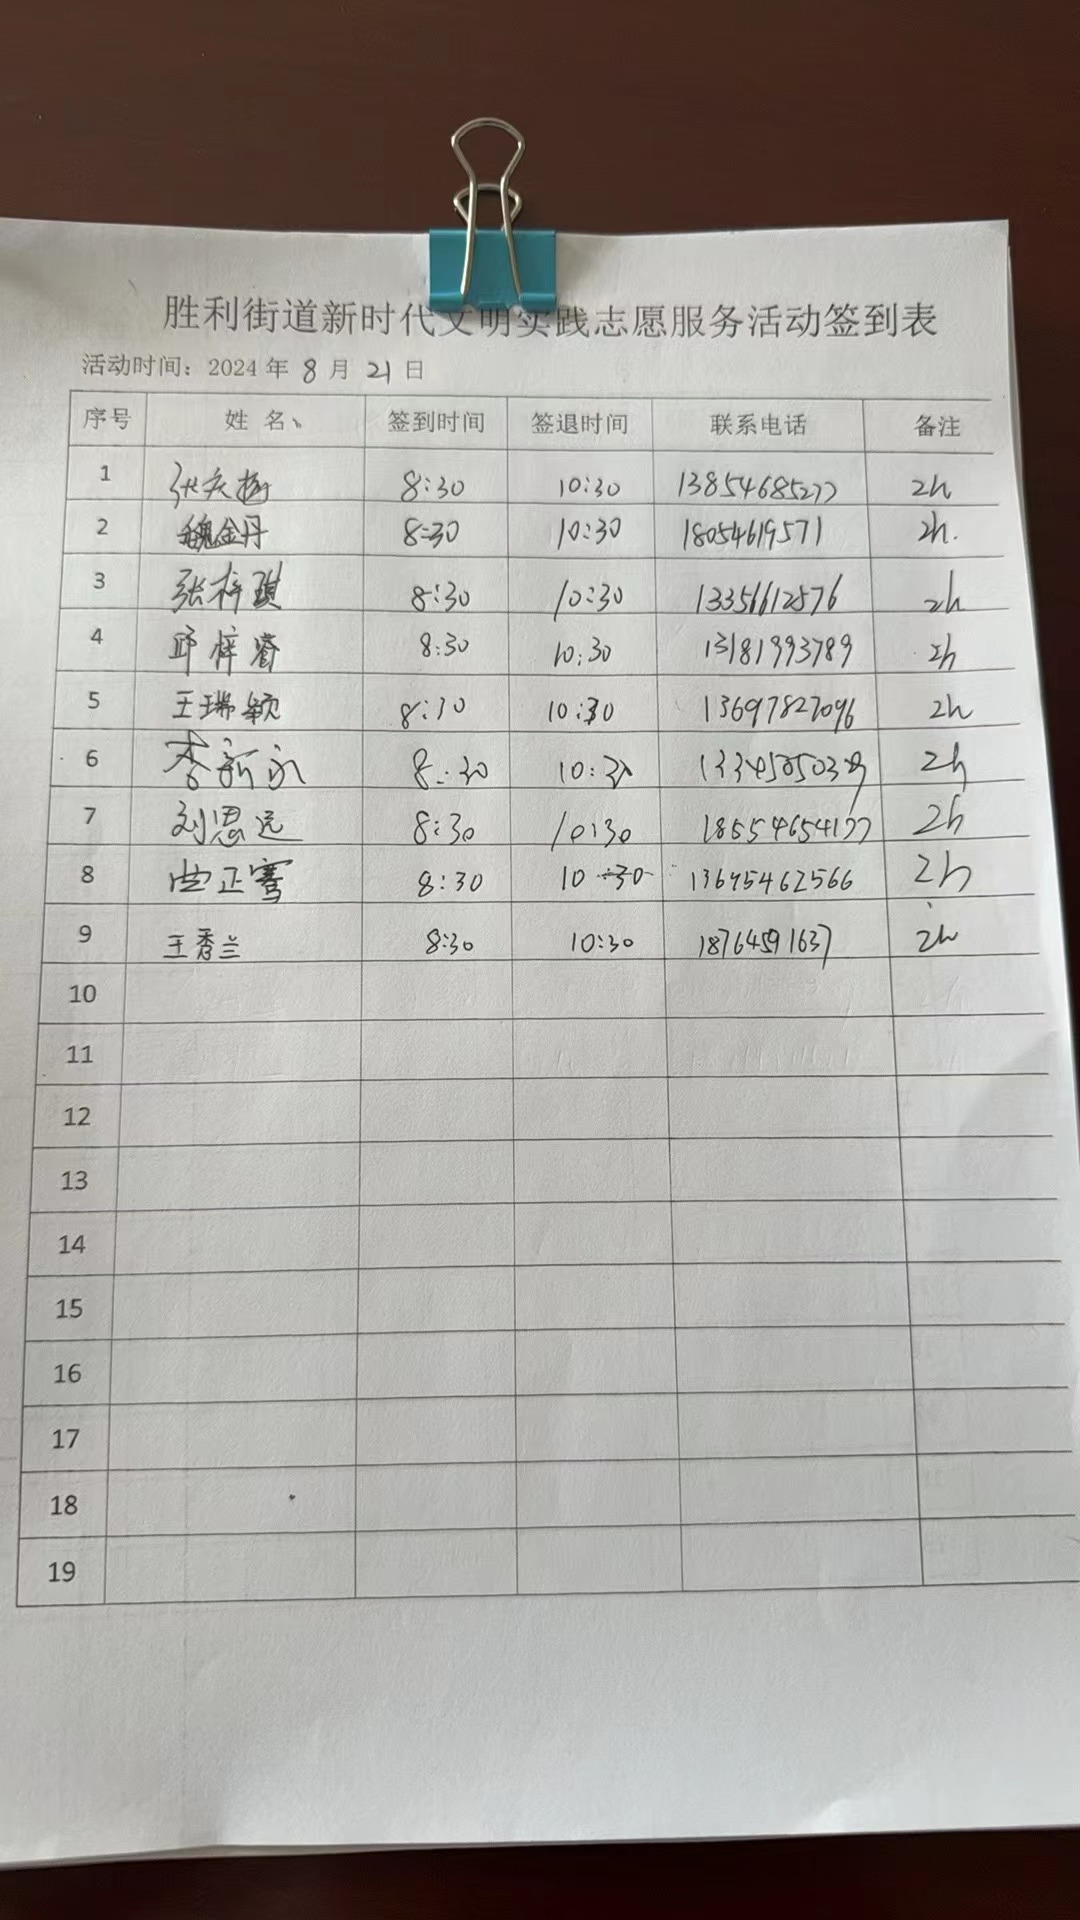 胜利街道新时代文明实践志愿服务活动签到表
活动时间：2024 年 8 月 21 日
序号 姓 名 签到时间 签退时间 联系电话 备注
1 张庆梅 8:30 10:30 13854685277 2h
2 魏金丹 8:30 10:30 18054619571 2h.
3 张梓琪 8:30 10:30 13356612576 2h
4 邱梓睿 8:30 10:30 13181993789 2h
5 王瑞颖 8:30 10:30 13697827096 2h
6 李新永 8:30 10:30 2h
7 刘思远 8:30 10:30 18554654177 2h
8 曲正骞 8:30 10:30 13695462566 2h
9 王秀兰 8:30 10:30 18764591637 2h
10
11
12
13
14
15
16
17
18
19